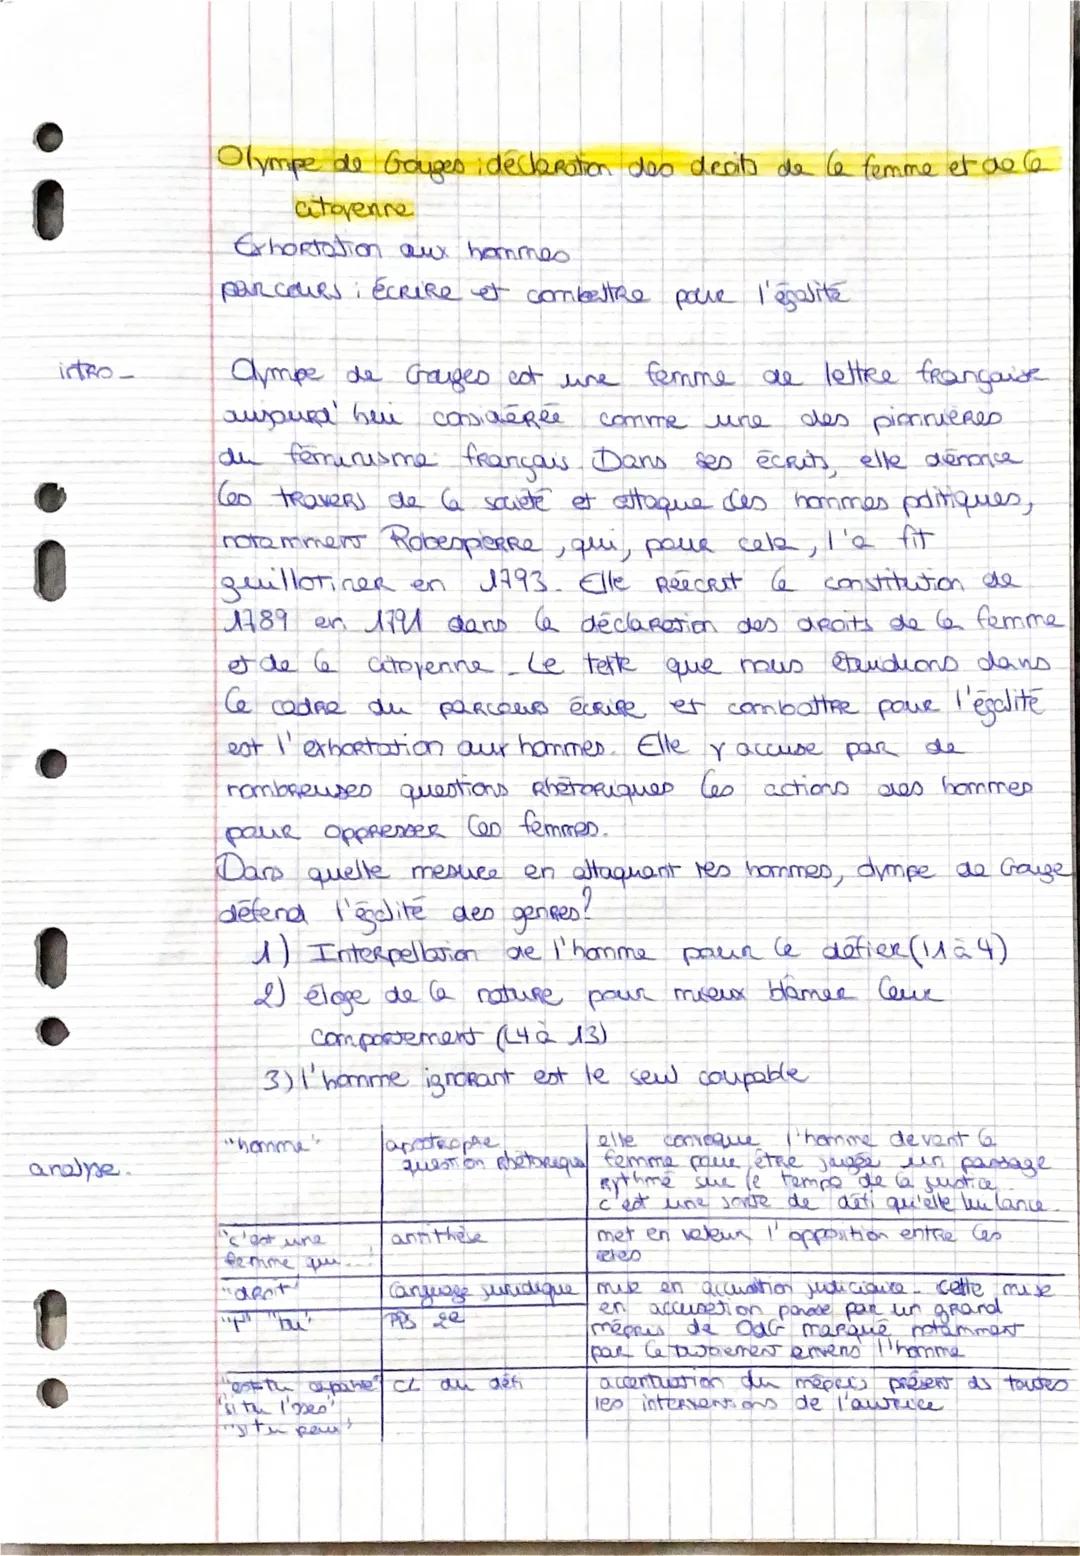 Olympe de Gouges : déclaration des droits de la femme et de la
citoyenne
Exhortation aux hommes
parcours : écrire et combattre pour l'égalité
intro -
Olympe de Gouges est une femme de lettre française
aujourd'hui considérée comme une des pionnières
du féminisme français. Dans ses écrits, elle dénonce
les travers de la société et attaque des hommes politiques,
notamment Robespierre, qui, pour cela, l'a fit
guillotiner en 1793. Elle réécrit la constitution de
1789 en 1791 dans la déclaration des droits de la femme
et de la citoyenne. Le texte que nous étudions dans
le cadre du parcours écrire et combattre pour l'égalité
est l'exhortation aux hommes. Elle y accuse par de
nombreuses questions rhétoriques les actions des hommes
pour oppresser les femmes.
Dans quelle mesure en attaquant les hommes, Olympe de Gouge
défend l'égalité des genres?
1) Interpellation de l'homme pour le défier (l1 à 4)
2) éloge de la nature pour mieux blâmer leur
comportement (L4 à 13)
3) l'homme ignorant est le seul coupable
analyse.
"homme" apostrophe elle convoque l'homme devant la
question rhétorique femme pour être jugée un passage
rythmé sur le tempo de la justice.
c'est une sorte de défi qu'elle lui lance.
"c'est une antithèse met en valeur l'opposition entre les
femme qui..." sexes
"droit" language juridique mise en accusation judiciaire. cette mise
en accusation passe par un grand
"t'" "tu" PPS 2e mépris de OdG marqué notamment
par le tutoiement envers l'homme
"es-tu capable" CL du défi accentuation du mépris présent ds toutes
"si tu l'oses" les interventions de l'autrice
"si tu peux"